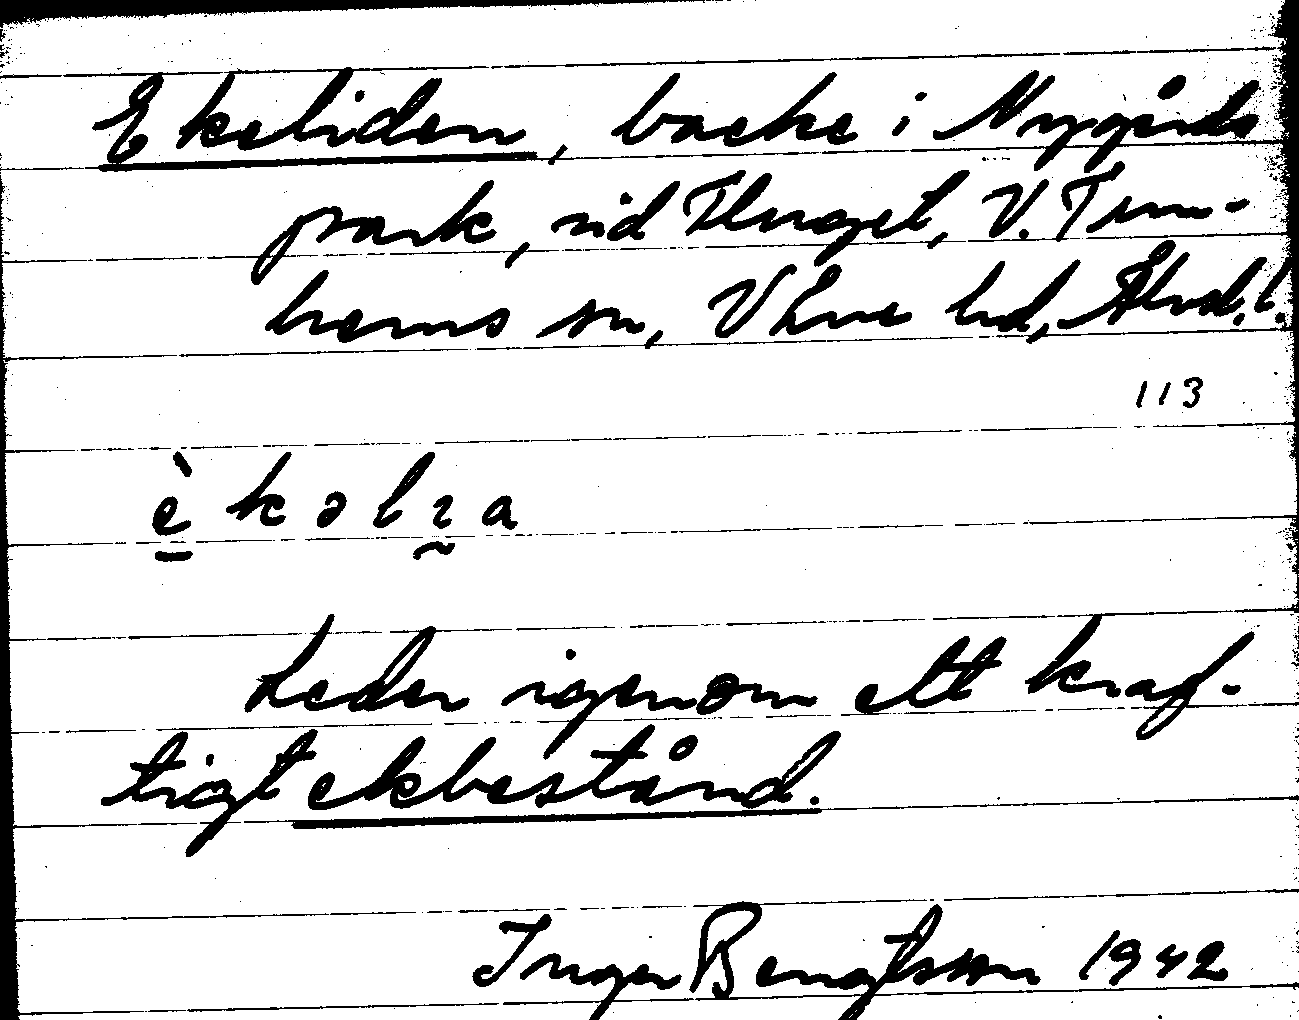 Ekeliden, backe i Nygårds
park, vid Floget, V. Tun-
hems sn, Väne hd, Älvsb. l.
113
è k ə l ı a
Leder igenom ett kraf-
tigt ekbestånd.
Inger Bengtsson 1942